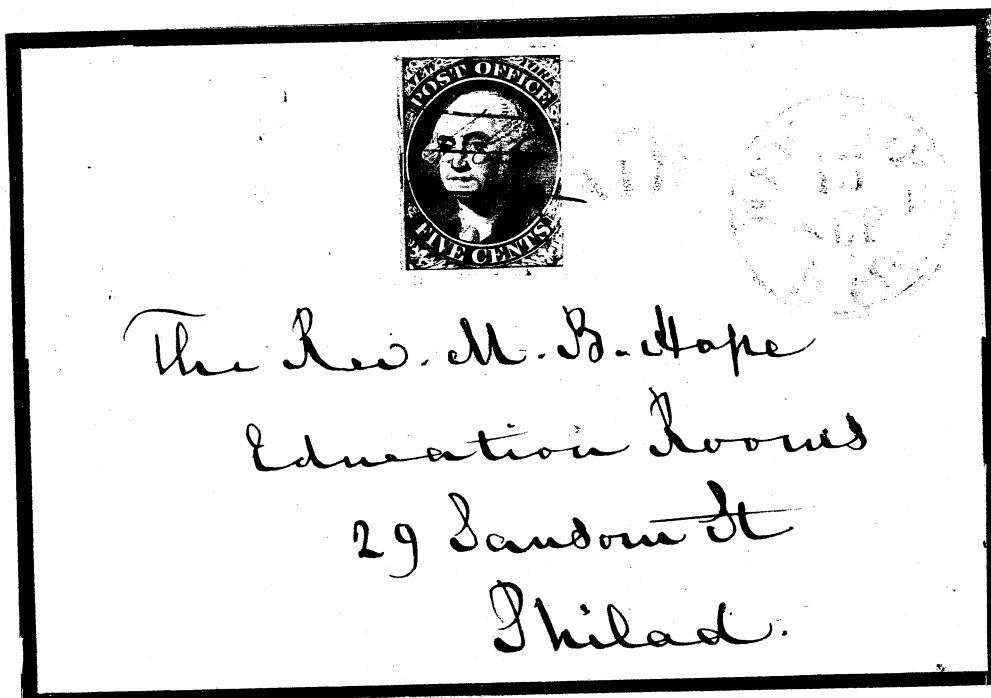 NEW YORK
POST OFFICE
FIVE CENTS
The Rev. M. B. Hope
Education Rooms
29 Sansom St
Philad.